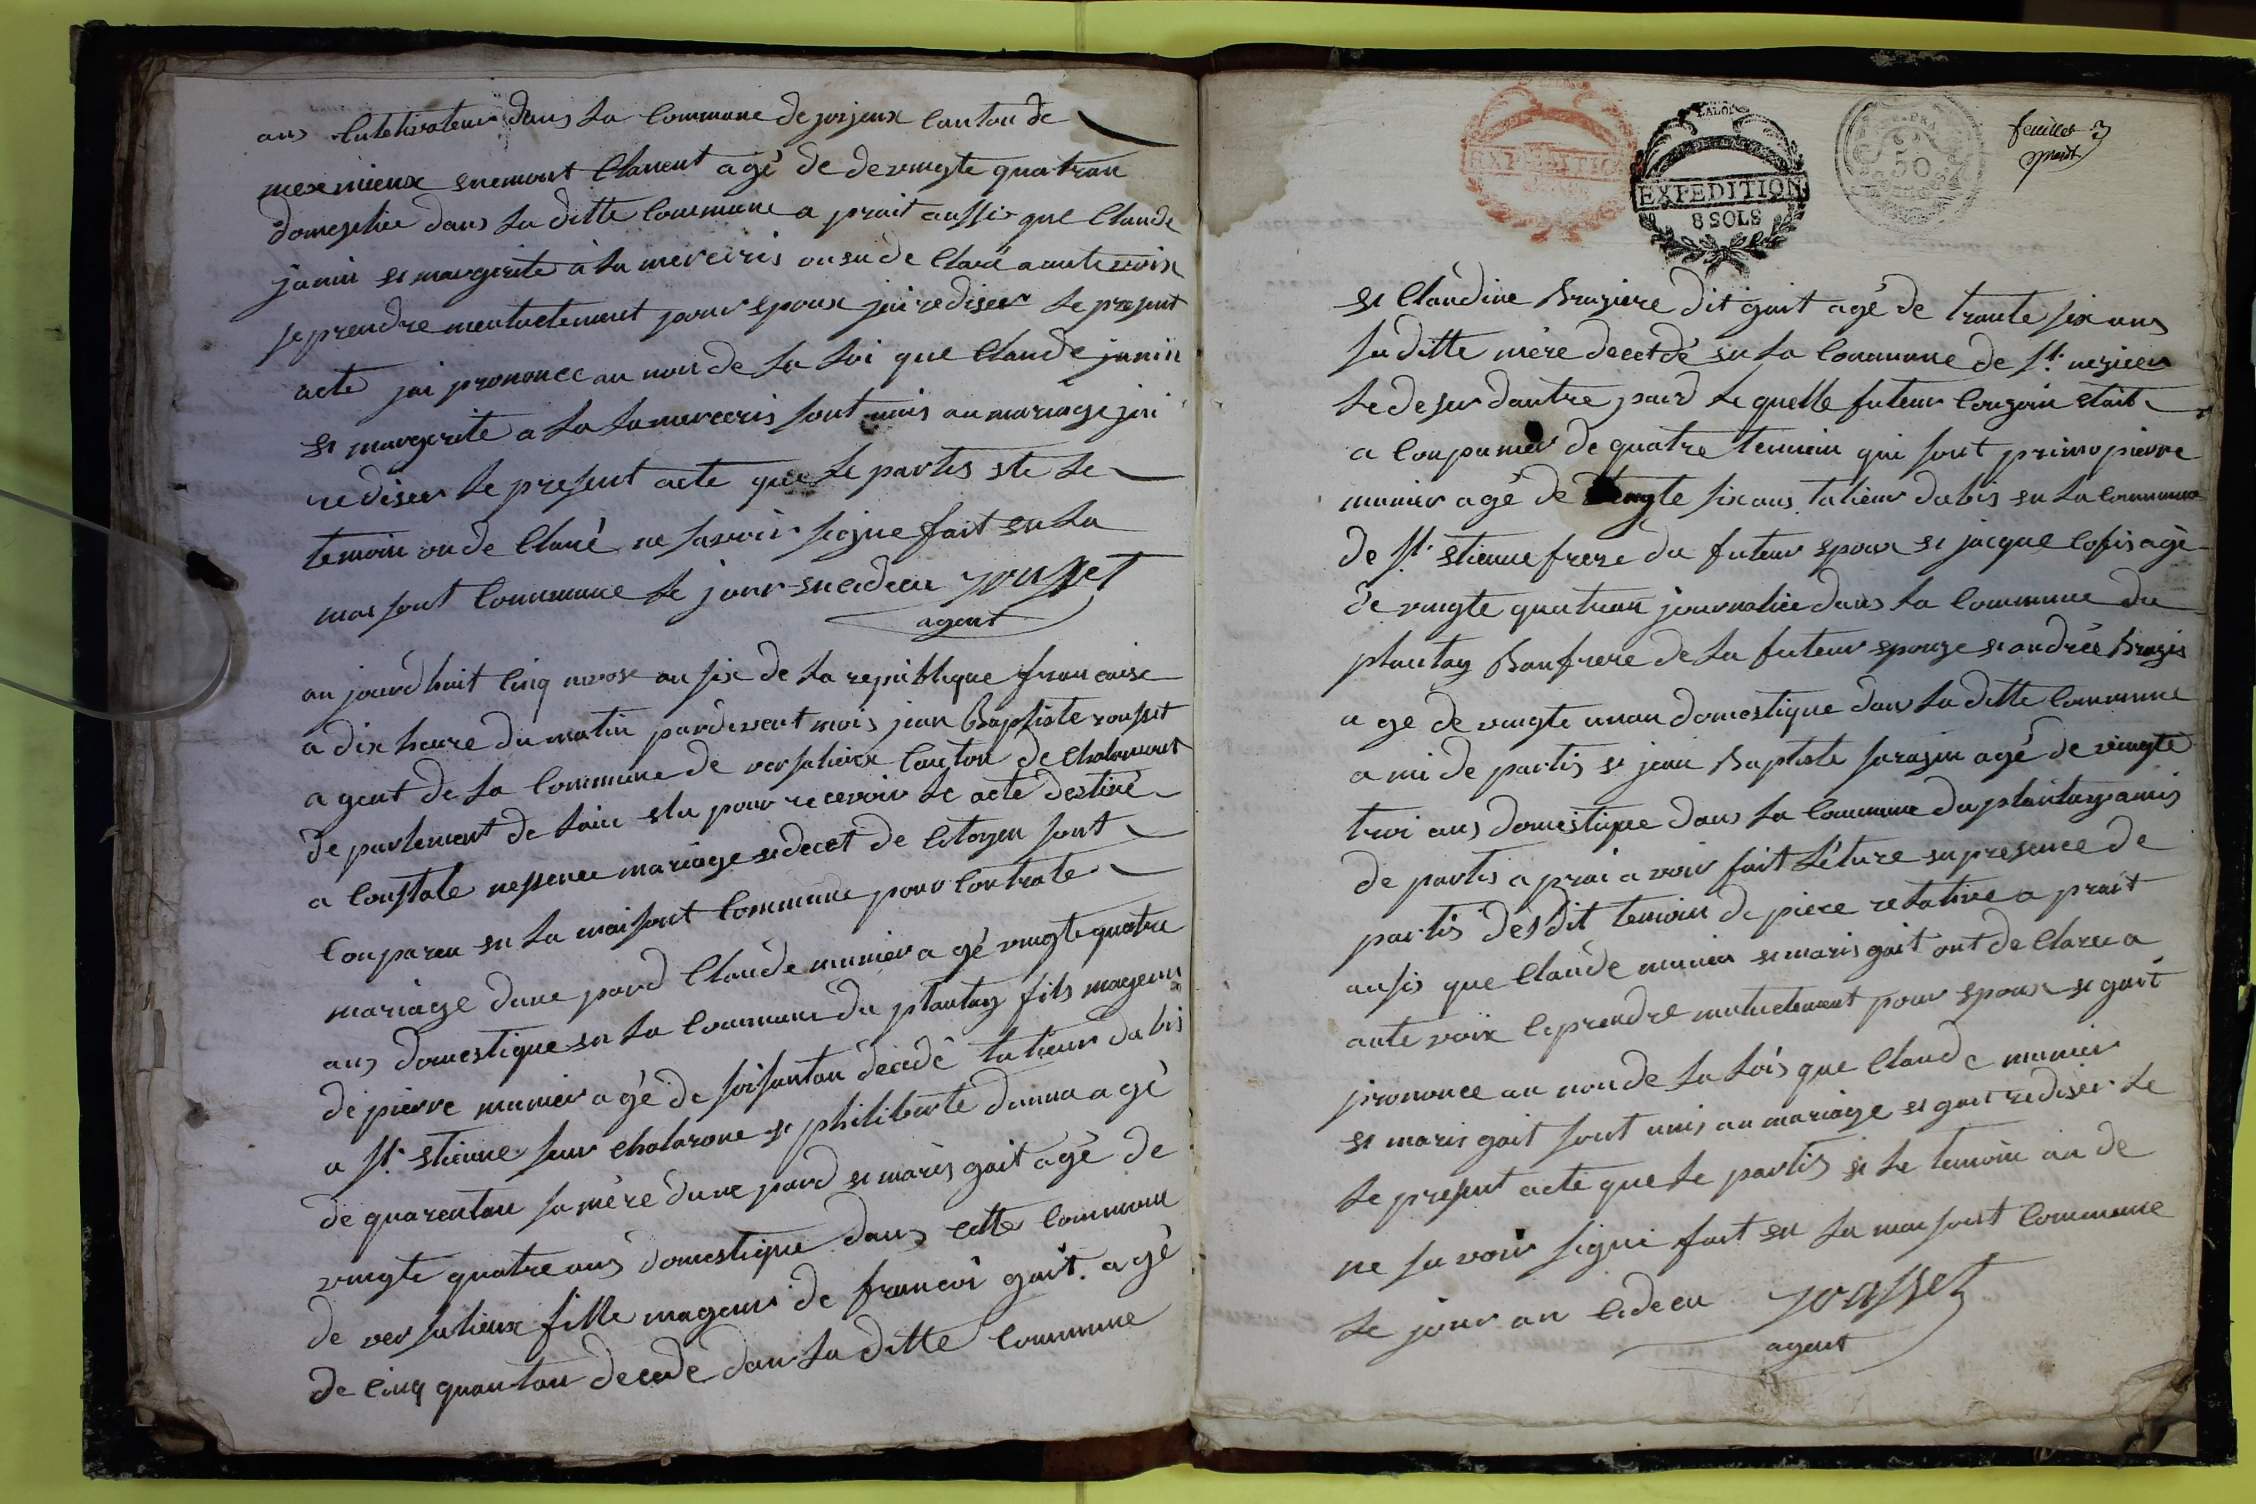 ans Cultetivateur dans La Commune de jorjeux Canton de
mexmieux enemont Clanent agé de devingte quatran
domestice dans La ditte Commune a prait aussi que Claude
janin et margerite a La merceris on en de Claré a aute voix
se prendre meutuctement pour epoux jai rediser Le present
acte jai prononce au nom de La Loi que Claude janin
et margerite a La Lamerceris sont unis au mariage jai
rediser Le present acte que Le partis ete Le
temoin on de Claré ne savoir signe fait en La
maisont Commune Le jour en cidecu rousset
agent
au jourdhuit Cinq nivose an six de La republique francaise
a dix heure du matin pardevant mois jean Baptiste rousset
agent de La Commune de versalieux Canton de Chalamont
de partement de Lain elu pour recevoir Le acte destiné
a Constate nessence mariage et decet de Citoyen sont
Comparen en La maisont Commune pour Contrate
mariage dune pard Claude munier agé vingte quatre
ans domestique en La Commune du plantay fils mageur
de pierre munier agé de soisantan décédé talieur dabis
a St. etienne sur Chalarone et philiberte danna agé
de quarentan sa mère dune pard et maris gait agé de
vingte quatre ans domestique dans cette Commune
de versalieux fille mageur de francoi gait agé
de Cinquantan decedé dans La ditte Commune
EXPEDITION
EXPEDITION
8 SOLS
50
feuillet 3
et Claudine Bruziere dit gait agé de trante six ans
sa ditte mère decetdé en La Commune de St. nezieu
Le deser dautre pard Le quelle futeur Conzoin etait
a Compannier de quatre temoin qui sont primo pierre
munier agé de vingte six ans talieur dabis en La Commune
de St. etienne frere du futeur epoux et jacque Cofis agé
de vingte quatran journalier dans La Commune du
plantay Baufrere de La futeur epouze et andrée Bruzis
agé de vingte unan domestique dans La ditte Commune
ami de partis et jean Baptiste sarazin agé de vingte
troi ans domestique dans La Commune du plantay amis
de partis a prai avoir fait Léture en presence de
partis desdit temoin de piece relative a prait
ausis que Claude munier et maris gait ont de Clarer a
aute voix Ce prendre mutuctement pour epoux et gait
prononce au non de La Lois que Claude munier
et maris gait sont unis au mariage et gait rediser Le
Le present acte que Le partis et Le temoin on de
ne savoir signé fait en La maisont Commune
Le jour an Cidecu rousset
agent